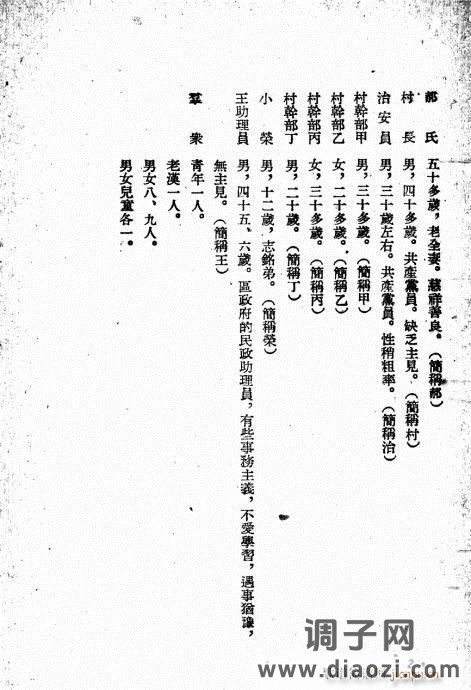 郝氏 五十多歲，老全妻。慈祥善良。（簡稱郝）
村長 男，四十多歲。共產黨員。缺乏主見。（簡稱村）
治安員 男，三十歲左右。共產黨員。性稍粗率。（簡稱治）
村幹部甲 男，三十多歲。（簡稱甲）
村幹部乙 男，二十多歲。（簡稱乙）
村幹部丙 女，三十多歲。（簡稱丙）
村幹部丁 男，二十歲。（簡稱丁）
小榮 男，十二歲，志銘弟。（簡稱榮）
王助理員 男，四十五、六歲。區政府的民政助理員，有些事務主義，不愛學習，遇事猶豫，
無主見。（簡稱王）
羣衆 青年一人。
老漢一人。
男女八、九人。
男女兒童各一。
调子网
www.diaozi.com